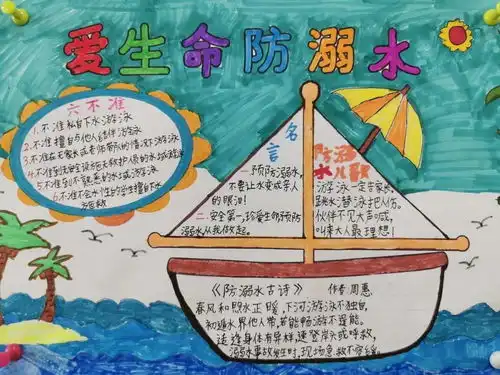 爱生命防溺水
六不准
1.不准私自下水游泳
2.不准擅自与他人结伴游泳
3.不准在无家长或老师带队的情况下游泳
4.不准到无安全设施无救护人员的水域游泳
5.不准到不熟悉的水域游泳
6.不准不会水性的学生擅自下水
施救
名言
一、预防溺水,
不要让水变成亲人
的眼泪!
二、安全第一,珍爱生命预防
溺水从我做起。
防溺
水儿歌
游泳一定告家长,
跳水潜泳把人伤。
伙伴不见大声喊,
叫来大人最理想!
《防溺水古诗》 作者 周惠
春风和煦水正暖,下河游泳不独自,
初遇水界他人带,若能畅游不逞能。
适逢身体有异样,速登岸头或呼救,
溺水事故发生时,现场急救不容缓。